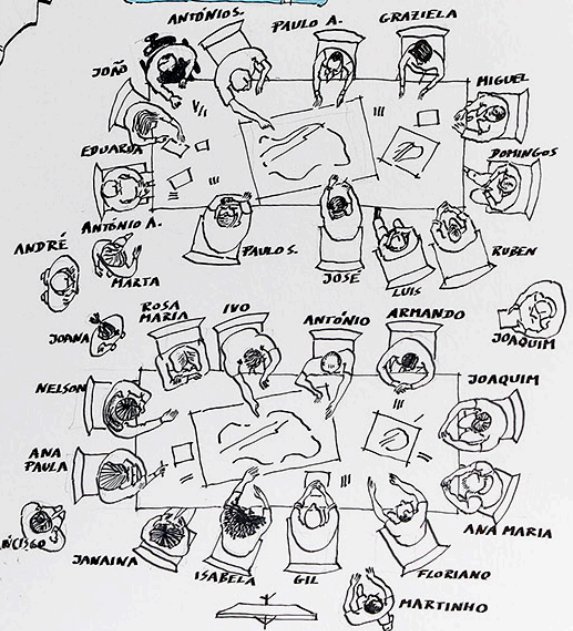 ANTÓNIO S.
PAULO A.
GRAZIELA
JOÃO
MIGUEL
EDUARDA
DOMINGOS
ANTÓNIO A.
ANDRÉ
MARTA
PAULO S.
JOSÉ
LUIS
RUBEN
JOANA
ROSA
MARIA
IVO
ANTÓNIO
ARMANDO
JOAQUIM
NELSON
JOAQUIM
ANA
PAULA
ANA MARIA
JANAINA
ISABELA
GIL
FLORIANO
MARTINHO